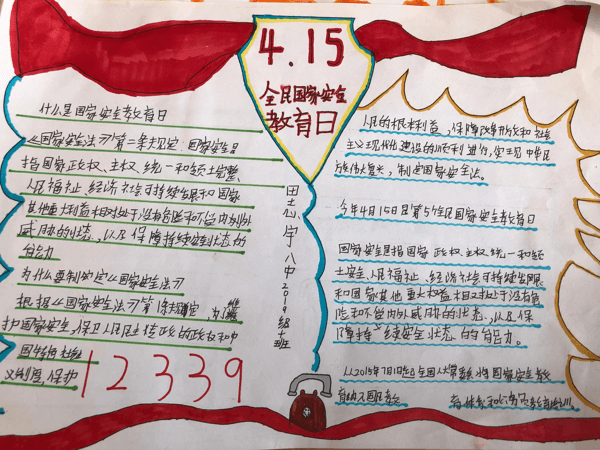 4.15
全民国家安全
教育日
什么是国家安全教育日
《国家安全法》第二条规定:国家安全是
指国家政权、主权、统一和领土完整、
人民福祉、经济社会可持续发展和国家
其他重大利益相对处于没有危险和不受内外
威胁的状态,以及保障持续安全状态的
的能力
为什么要制定《国家安全法》
根据《国家安全法》第1条规定,为维
护国家安全,保卫人民民主专政的政权和中
国特色社会
义制度,保护
12339
田志宁八中2019级七班
人民的根本利益,保障改革开放和社会
主义现代化建设的顺利进行,实现中华民
族伟大复兴,制定国家安全法。
今年4月15日是第5个全民国家安全教育日
国家安全是指国家政权主权、统一和领
土安全、人民福祉、经济社会可持续发展
和国家其他重大利益相对处于没有危
险和不受内外威胁的状态,以及保
障持续安全状态的能力。
从2015年7月1日起
国家安全教
育纳入国民教
育体系和公务员教育培训。